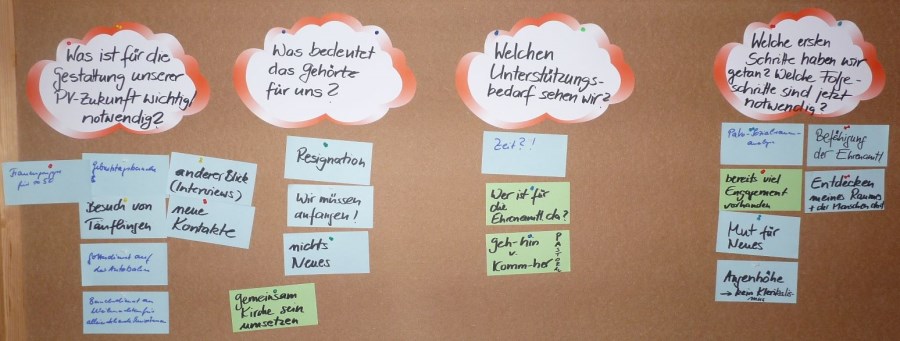 Was ist für die
Gestaltung unserer
PV-Zukunft wichtig/
notwendig?
Frauengruppe
für
Geburtstagsbesuche
Besuch von
Täuflingen
Gottesdienst auf
der Autobahn
Besuchsdienst an
Weihnachten für
alleinstehende
anderer Blick
(Interviews)
neue
Kontakte
Was bedeutet
das gehörte
für uns?
Resignation
Wir müssen
anfangen!
nichts
Neues
gemeinsam
Kirche sein
umsetzen
Welchen
Unterstützungs-
bedarf sehen wir?
Zeit?!
Wer ist für
die
Ehrenamtl. da?
geh-hin
v.
Komm-her
PASTORAL
Welche ersten
Schritte haben wir
getan? Welche Folge-
schritte sind jetzt
notwendig?
analyse
bereits viel
Engagement
vorhanden
Mut für
Neues
Augenhöhe
→ kein Klerikalis-
mus
Befähigung
der Ehrenamtl
Entdecken
meines Raumes
+ der Menschen dort